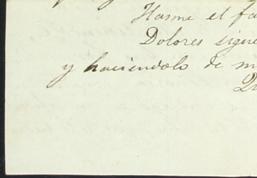 Hasme el fa
Dolores sigue
y haciendolo de m